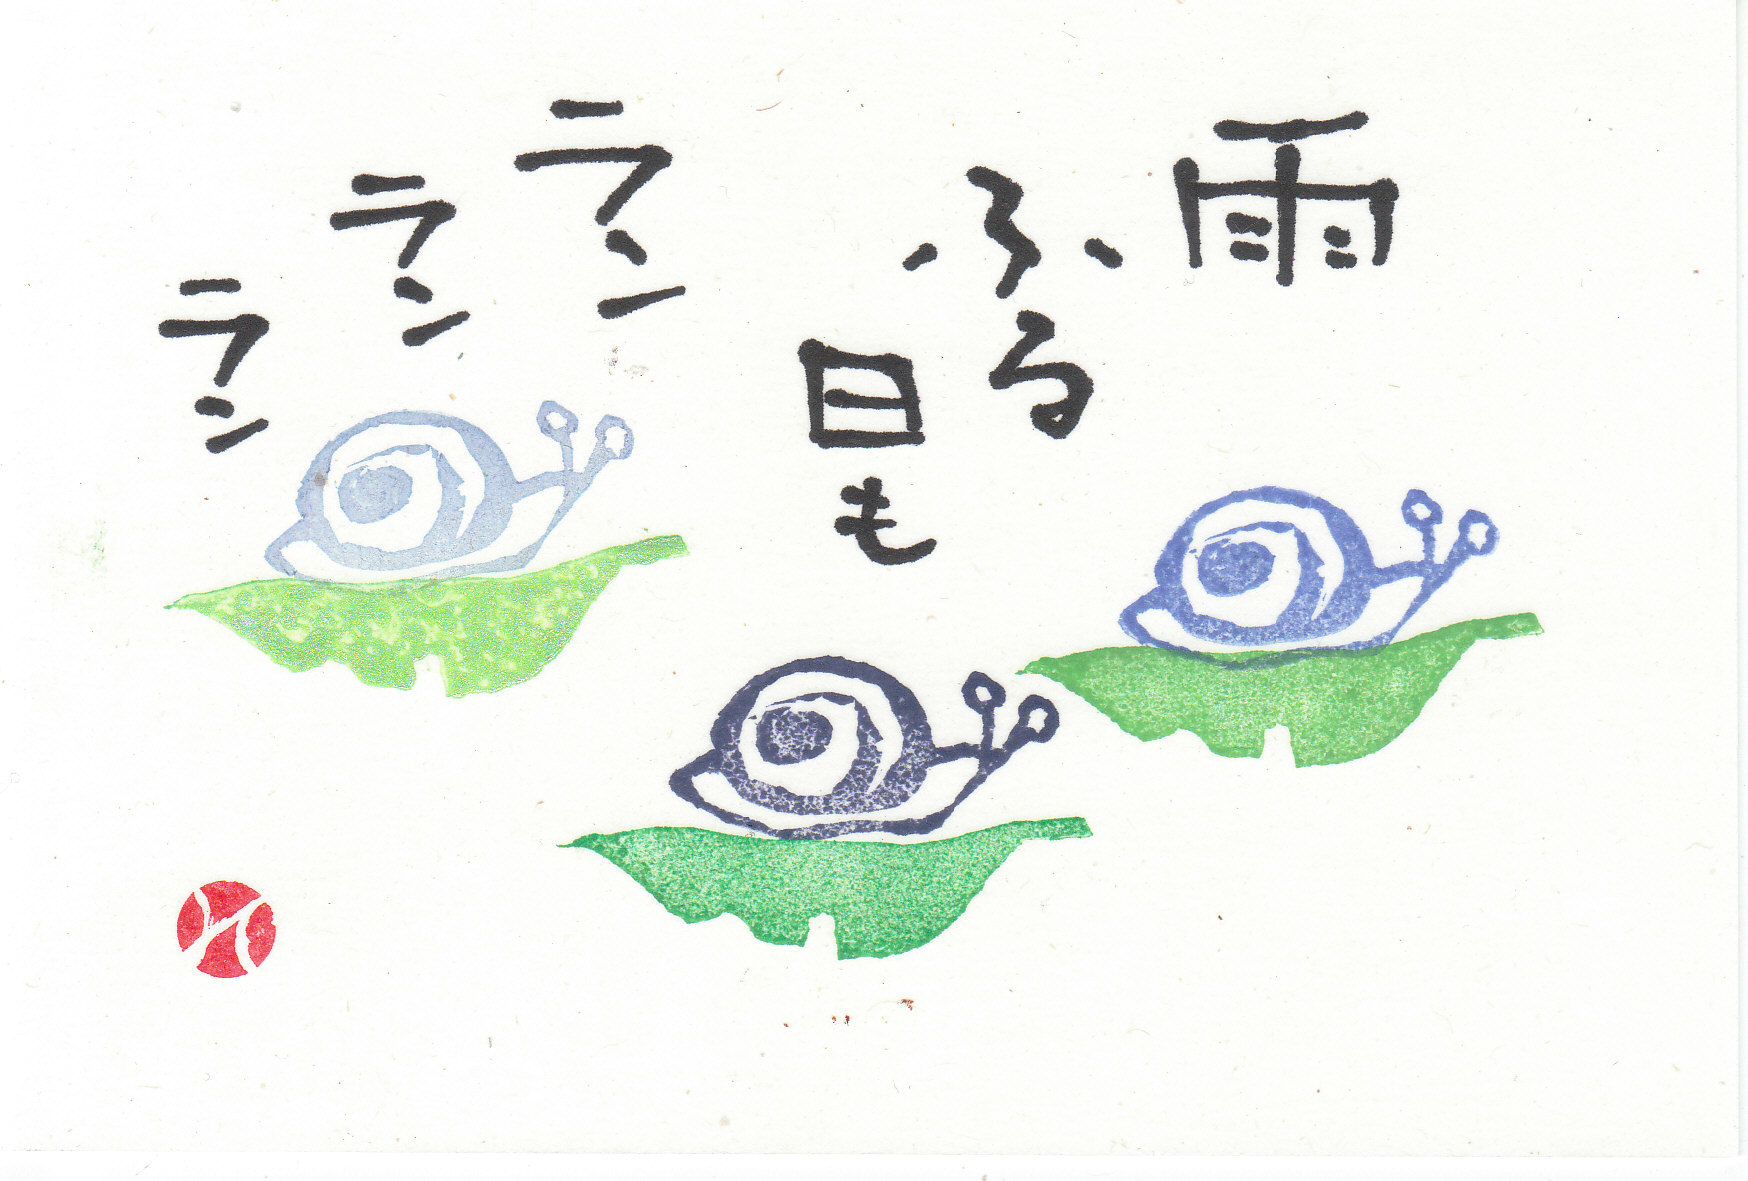 雨
ふる
日も
ラン
ラン
ラン